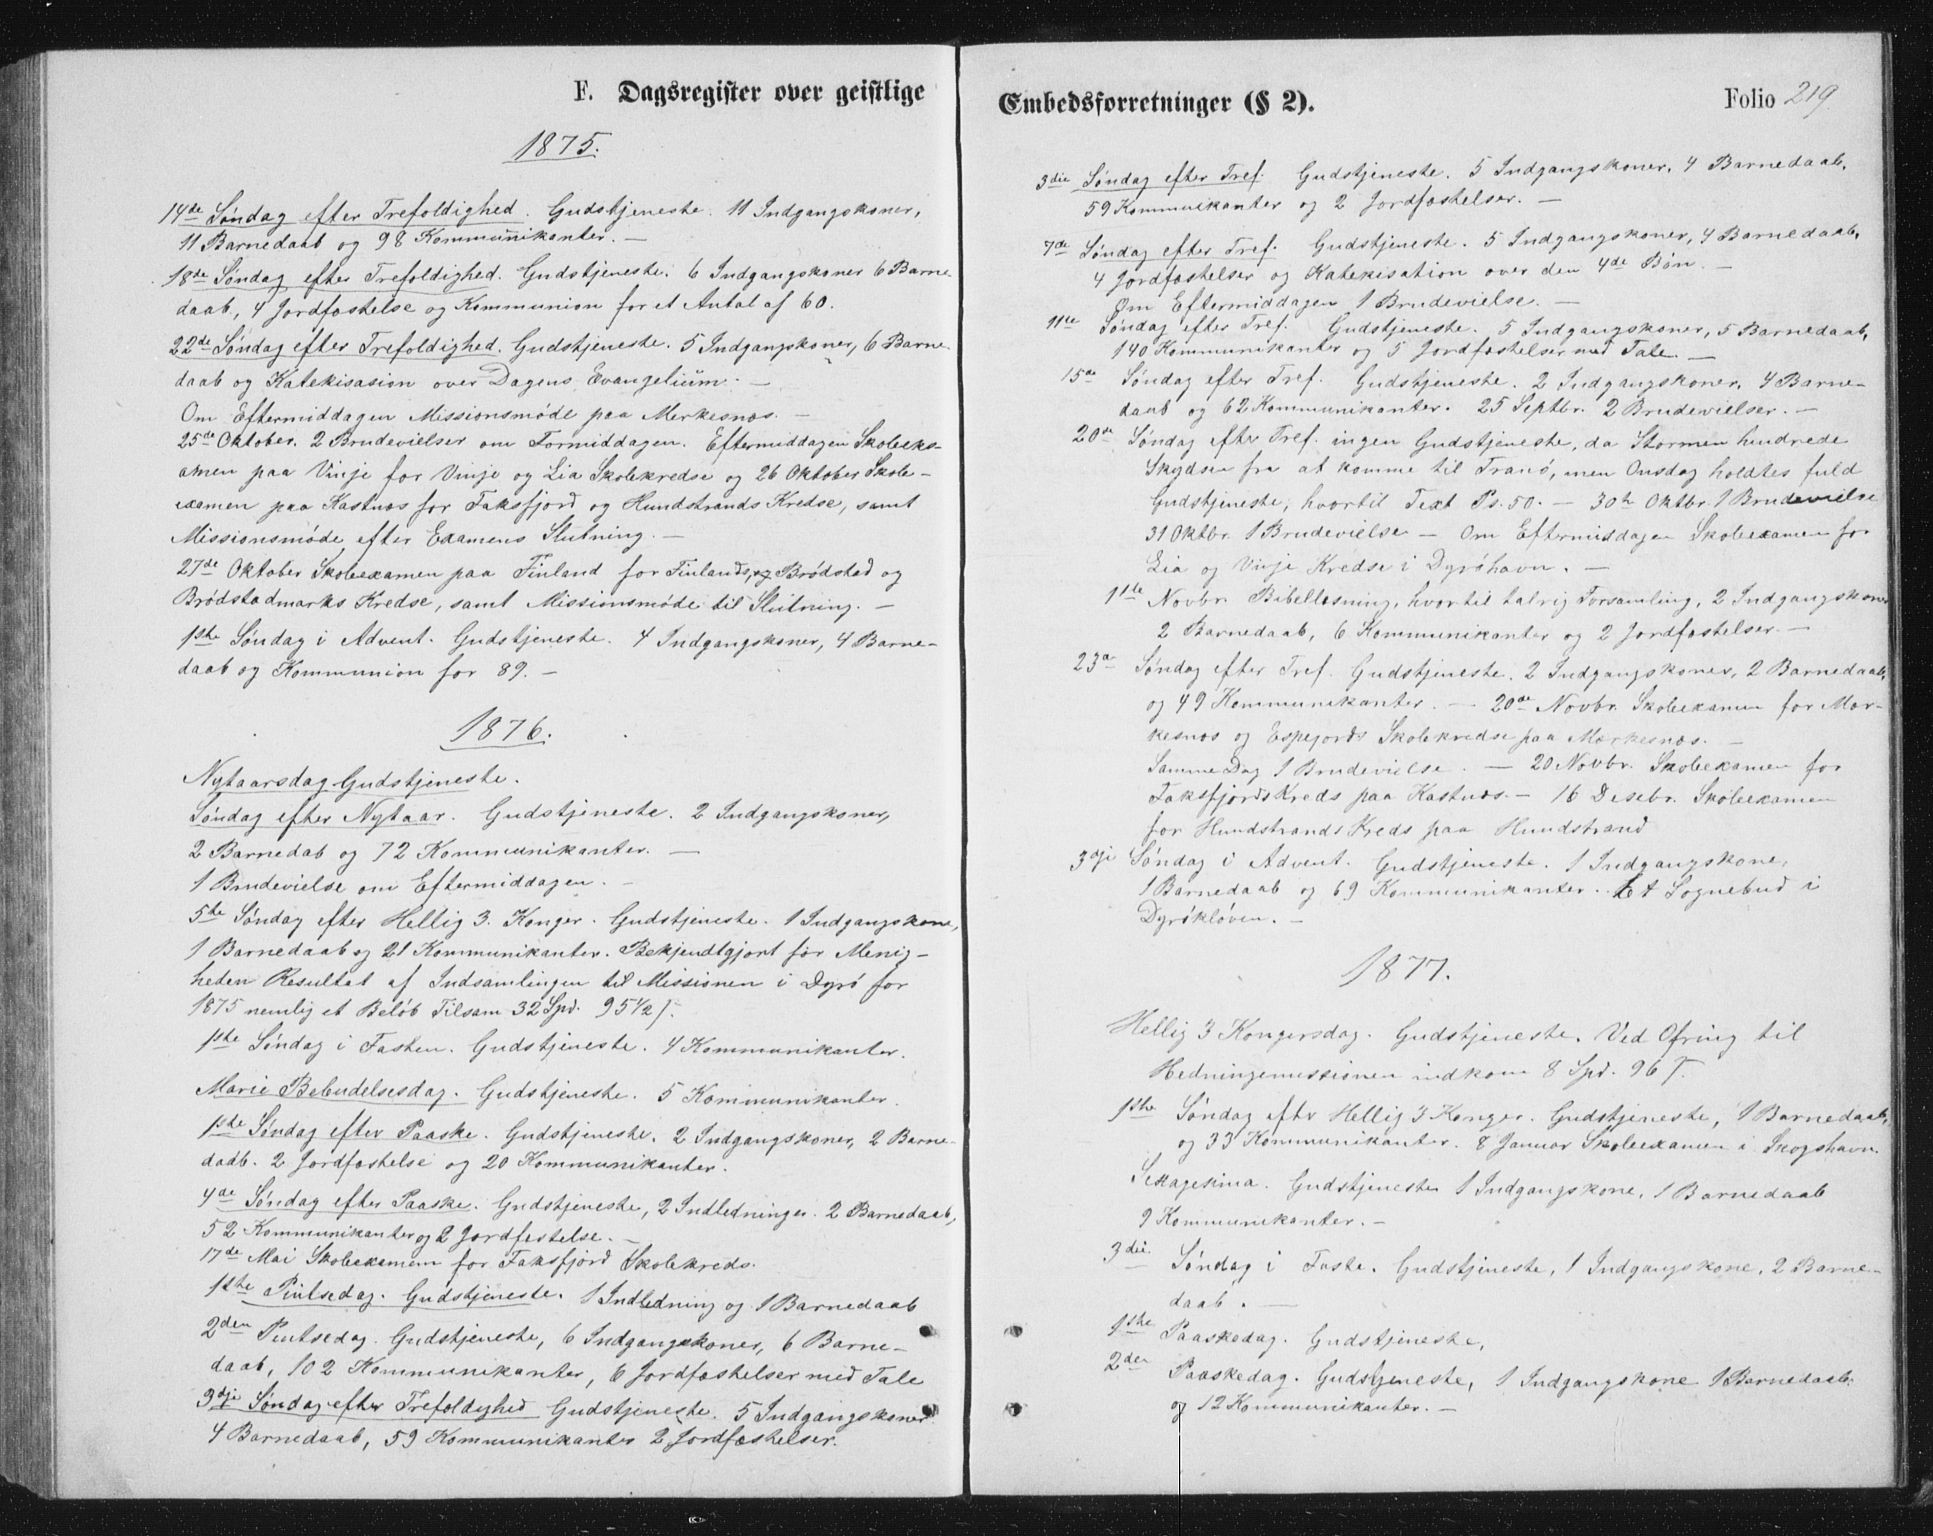 F. Dagsregister over geistlige
1875.
14de Søndag efter Trefoldighed. Gudstjeneste. 11 Indgangskoner,
11 Barnedaab og 98 Kommunikanter. —
18de Søndag efter Trefoldighed. Gudstjeneste. 6 Indgangskoner 6 Barne-
daab, 4 Jordfæstelse og Kommunion for et Antal af 60.
22de Søndag efter Trefoldighed. Gudstjeneste. 5 Indgangskoner, 6 Barne-
daab og Katekisasion over Dagens Evangelium. —
Om Eftermiddagen Missionsmøde paa Merkesnæs. —
25de Oktober. 2 Brudevielser om Formiddagen. Eftermiddagen Skoleeks-
amen paa Vinje for Vinje og Lia Skolekredse og 26 Oktober Skole-
examen paa Kastnæs for Faksfjord og Hundstrands Kredse, samt
Missionsmøde efter Examens Slutning. —
27de Oktober Skoleexamen paa Finland for Finlands, og Brødstad og
Brødstadmarks Kredse, samt Missionsmøde til Slutning. —
1ste Søndag i Advent. Gudstjeneste. 4 Indgangskoner, 4 Barne-
daab og Kommunion for 89. —
1876.
Nytaarsdag Gudstjeneste.
Søndag efter Nytaar. Gudstjeneste. 2 Indgangskoner,
2 Barnedab og 72 Kommunikanter. —
1 Brudevielse om Eftermiddagen. —
5te Søndag efter Hellig 3. Konger. Gudstjeneste. 1 Indgangskone,
1 Barnedaab og 21 Kommunikanter. Bekjendtgjort for Menig-
heden Resultat af Indsamlingen til Missionen i Dyrø for
1875 nemlig et Beløb Tilsam 32 Spd. 95 1/2 ſ.
1ste Søndag i Fasten. Gudstjeneste. 4 Kommunikanter.
Marie Bebudelsesdag. Gudstjeneste. 5 Kommunikanter.
1ste Søndag efter Paaske. Gudstjeneste. 2 Indgangskoner, 2 Barne-
daab. 2 Jordfæstelse og 20 Kommunikanter.
4de Søndag efter Paaske. Gudstjeneste, 2 Indledninger. 2 Barnedaab,
52 Kommunikanter og 2 Jordfestelse. —
17de Mai Skoleexamen for Faksfjord Skolekreds.
1ste Pintsedag. Gudstjeneste. 1 Indledning og 1 Barnedaab
2den Pintsedag. Gudstjeneste, 6 Indgangskoner, 6 Barne-
daab, 102 Kommunikanter, 6 Jordfæstelser med Tale
3dje Søndag efter Trefoldighed Gudstjeneste. 5 Indgangskoner
4 Barnedaab, 59 Kommunikanter 2 Jordfæstelser.
Embedsforretninger (§ 2).
Folio 219.
3die Søndag efter Tref. Gudstjeneste. 5 Indgangskoner, 4 Barnedaab,
59 Kommunikanter og 2 Jordfæstelser. —
7de Søndag efter Tref. Gudstjeneste. 5 Indgangskoner, 4 Barnedaab,
4 Jordfæstelser og Katekisation over den 4de Bøn. —
Om Eftermiddagen 1 Brudevielse. —
11te Søndag efter Tref. Gudstjeneste. 5 Indgangskoner, 5 Barnedaab,
140 Kommunikanter og 5 Jordfæstelser med Tale. —
15de Søndag efter Tref. Gudstjeneste. 2 Indgangskoner, 4 Barne-
daab og 62 Kommunikanter. 25 Septbr. 2 Brudevielser. —
20de Søndag efter Tref. ingen Gudstjeneste, da Stormen hindrede
Skydsen fra at komme til Tranø, men Onsdag holdtes fuld
Gudstjeneste, hvortil Text Ps. 50. — 30te Oktbr. 1 Brudevielse
31 Oktbr. 1 Brudevielse — Om Eftermiddagen Skoleexamen for
Lia og Vinje Kredse i Dyrøhavn. —
1ste Novbr. Bibellæsning, hvortil talrig Forsamling, 2 Indgangskoner
2 Barnedaab, 6 Kommunikanter og 2 Jordfæstelser. —
23de Søndag efter Tref. Gudstjeneste. 2 Indgangskoner, 2 Barnedaab,
og 49 Kommunikanter. — 20de Novbr. Skoleexamen for Mer-
kesnæs og Espejords Skolekredse paa Merkesnæs. —
Samme Dag 1 Brudevielse. — 20 Novbr. Skoleexamen for
Faksfjords Kreds paa Kastnæs. — 16 Desebr. Skoleexamen
for Hundstrands Kreds paa Hundstrand
3dje Søndag i Advent. Gudstjeneste. 1 Indgangskone,
1 Barnedaab og 69 Kommunikanter. Et Sognebud i
Dyrøkløven. —
1877.
Hellig 3 Kongersdag. Gudstjeneste. Ved Ofring til
Hedningemissionen indkom 8 Spd. 96 ſ.
1ste Søndag eftr Hellig 3 Konger. Gudstjeneste, 1 Barnedaab,
og 33 Kommunikanter. 8 Januar Skoleexamen i Skogshavn.
Sexagesima. Gudstjeneste 1 Indgangskone, 1 Barnedaab
9 Kommunikanter. —
3die Søndag i Faste. Gudstjeneste, 1 Indgangskone, 2 Barne-
daab. —
1ste Paaskedag. Gudstjeneste,
2den Paaskedag. Gudstjeneste, 1 Indgangskone 1 Barnedaab
og 12 Kommunikanter. —